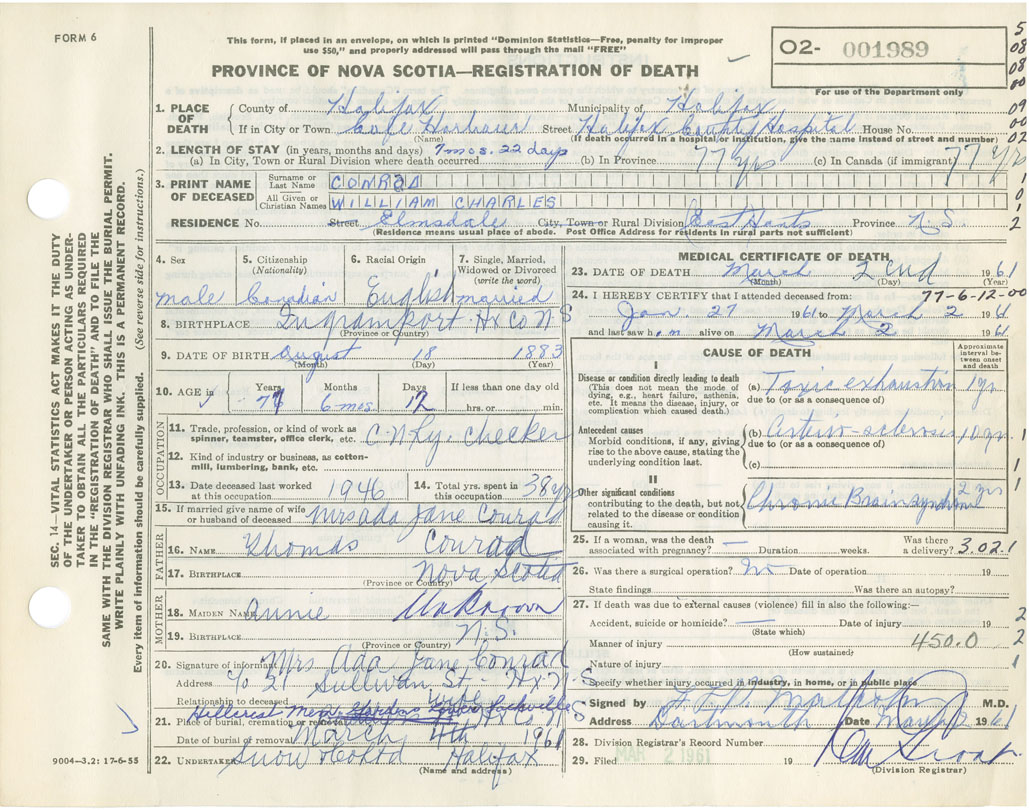 FORM 6
This form, if placed in an envelope, on which is printed "Dominion Statistics—Free, penalty for improper
use $50," and properly addressed will pass through the mail "FREE"
PROVINCE OF NOVA SCOTIA—REGISTRATION OF DEATH
02- 001989
For use of the Department only
5
08
08
00
09
00
02
1
0
1
2
SEC. 14—VITAL STATISTICS ACT MAKES IT THE DUTY
OF THE UNDERTAKER OR PERSON ACTING AS UNDER-
TAKER TO OBTAIN ALL THE PARTICULARS REQUIRED
IN THE "REGISTRATION OF DEATH" AND TO FILE THE
SAME WITH THE DIVISION REGISTRAR WHO SHALL ISSUE THE BURIAL PERMIT.
WRITE PLAINLY WITH UNFADING INK. THIS IS A PERMANENT RECORD.
Every item of information should be carefully supplied. (See reverse side for instructions.)
1. PLACE OF DEATH County of Halifax Municipality of Halifax
If in City or Town Cole Harbour Street Halifax County Hospital House No.
(Name) (If death occurred in a hospital or institution, give the name instead of street and number)
2. LENGTH OF STAY (in years, months and days) 7 mos. 22 days
(a) In City, Town or Rural Division where death occurred (b) In Province 77 yrs (c) In Canada (if immigrant) 77 yrs
3. PRINT NAME OF DECEASED
Surname or Last Name CONRAD
All Given or Christian Names WILLIAM CHARLES
RESIDENCE No. Street Elmsdale City, Town or Rural Division East Hants Province N.S.
(Residence means usual place of abode. Post Office Address for residents in rural parts not sufficient)
4. Sex male
5. Citizenship (Nationality) Canadian
6. Racial Origin English
7. Single, Married, Widowed or Divorced (write the word) married
8. BIRTHPLACE Ingramport Hx Co N S
(Province or Country)
9. DATE OF BIRTH August 18 1883
(Month) (Day) (Year)
10. AGE Years 77 Months 6 mos. Days 12 If less than one day old
hrs. or min.
OCCUPATION
11. Trade, profession or kind of work as spinner, teamster, office clerk, etc. C.N.Ry. Checker
12. Kind of industry or business, as cotton-mill, lumbering, bank, etc.
13. Date deceased last worked at this occupation 1946
14. Total yrs. spent in this occupation 38 yrs
15. If married give name of wife or husband of deceased Mrs Ada Jane Conrad
FATHER
16. NAME Thomas Conrad
17. BIRTHPLACE Nova Scotia
(Province or Country)
MOTHER
18. MAIDEN NAME Annie Unknown
19. BIRTHPLACE N.S.
(Province or Country)
20. Signature of informant Mrs Ada Jane Conrad
Address 21 Sullivan St - Hx N.S
Relationship to deceased Wife
Hillcrest Mem. Sackville
21. Place of burial, cremation or removal Hx Co N S
Date of burial or removal March 4th 1961
22. UNDERTAKER Snow & Co Ltd Halifax
(Name and address)
9004—3.2: 17-6-55
MEDICAL CERTIFICATE OF DEATH
23. DATE OF DEATH March 2nd 1961
(Month) (Day) (Year)
24. I HEREBY CERTIFY that I attended deceased from: 77-6-12-00
Jan. 27 1961 to March 2 1961
and last saw him alive on March 2 1961
CAUSE OF DEATH
Approximate interval between onset and death
I
Disease or condition directly leading to death
(This does not mean the mode of dying, e.g., heart failure, asthenia, etc. It means the disease, injury, or complication which caused death.)
(a) Toxic exhaustion 1 yr
due to (or as a consequence of)
Antecedent causes
Morbid conditions, if any, giving rise to the above cause, stating the underlying condition last.
(b) Arterio-sclerosis 10 yr.
due to (or as a consequence of)
(c)
1
1
1
II
Other significant conditions
contributing to the death, but not related to the disease or condition causing it.
Chronic Brain Syndrome 2 yrs
25. If a woman, was the death associated with pregnancy? — Duration weeks. Was there a delivery? 3.02.1
26. Was there a surgical operation? No Date of operation 19
State findings Was there an autopsy?
27. If death was due to external causes (violence) fill in also the following:—
Accident, suicide or homicide? — Date of injury 19 2
(State which)
Manner of injury 450.0 2
(How sustained)
Nature of injury 1
Specify whether injury occurred in industry, in home, or in public place
Signed by M.D.
Address Dartmouth Date 1961
28. Division Registrar's Record Number
29. Filed MAR 2 1961 19
(Division Registrar)